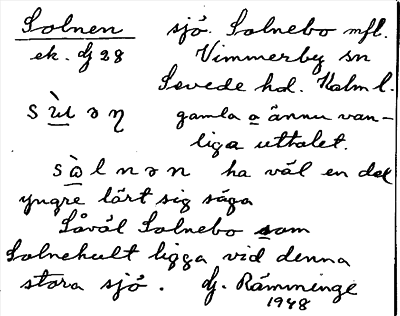 Solnen sjö. Solnebo mfl.
ek. dj 28 Vimmerby sn
Sevede hd. Kalm l.
gamla o ännu van-
liga uttalet.
sὰlnən ha väl en del
yngre lärt sig säga
Såväl Solnebo som
Solnehult ligga vid denna
stora sjö. dj. Rämminge
1948